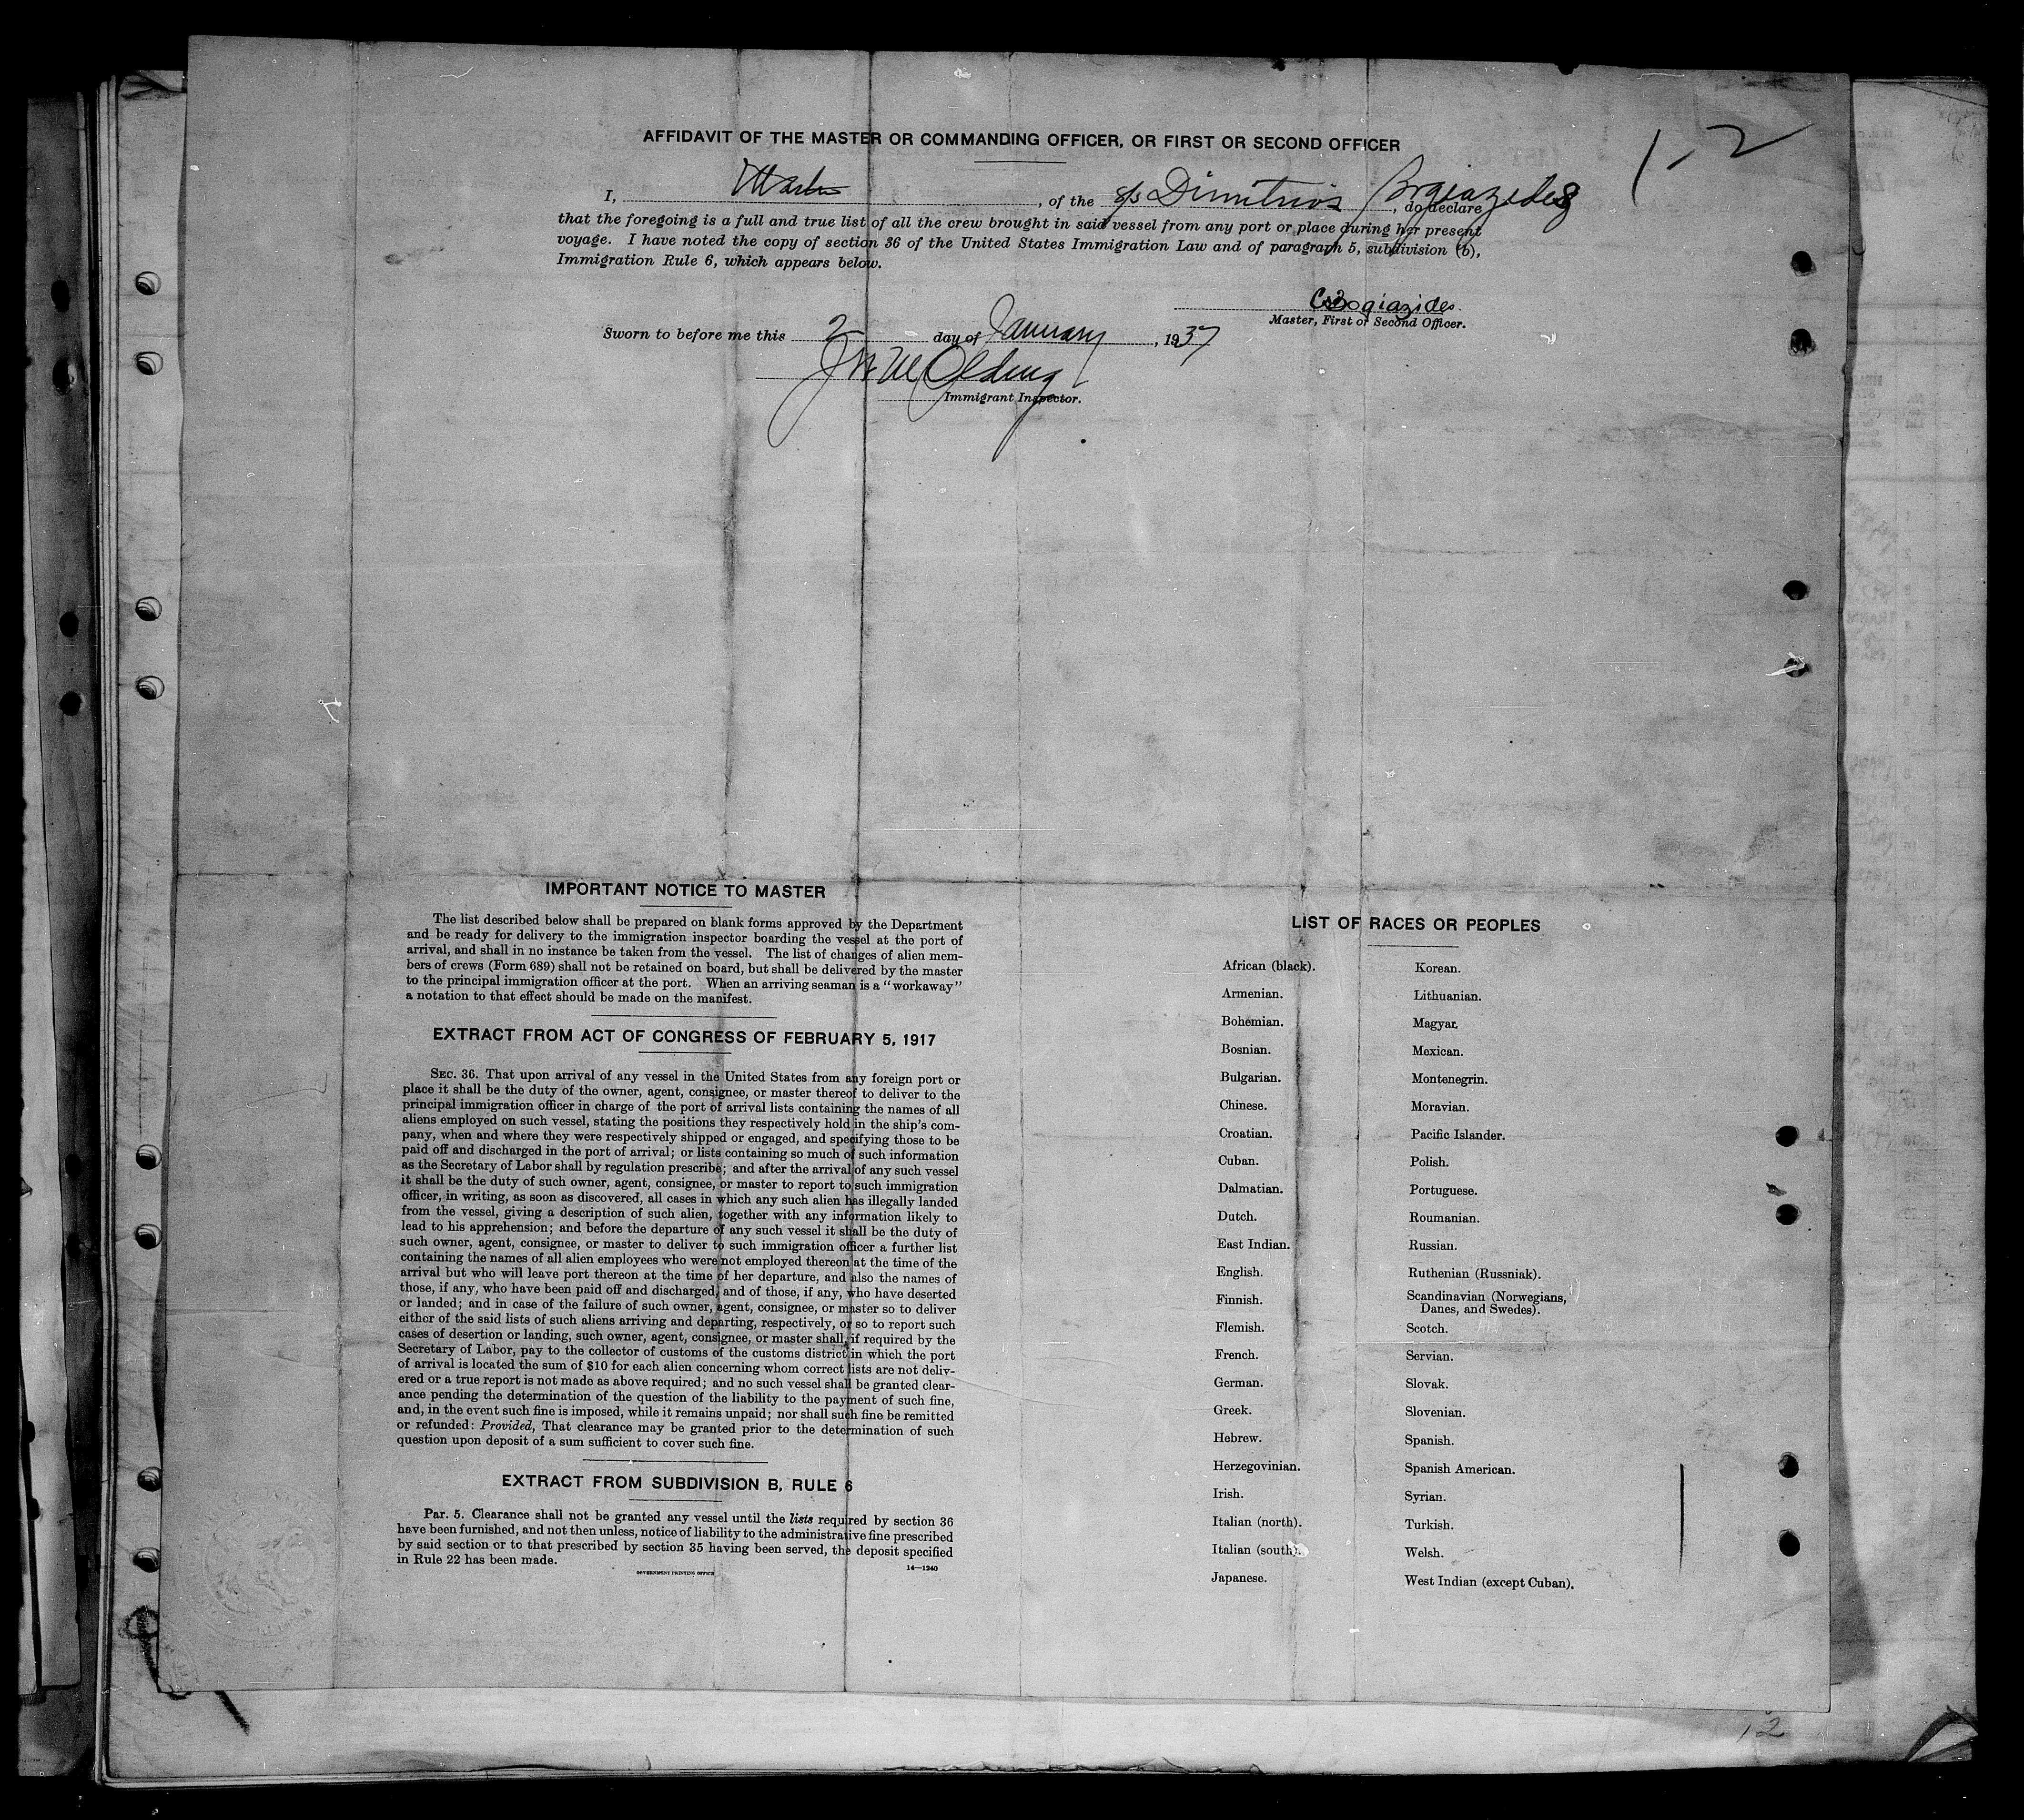 1-2
AFFIDAVIT OF THE MASTER OR COMMANDING OFFICER, OR FIRST OR SECOND OFFICER
I, Master, of the s/s Dimitrios, do declare
that the foregoing is a full and true list of all the crew brought in said vessel from any port or place during her present
voyage. I have noted the copy of section 36 of the United States Immigration Law and of paragraph 5, subdivision (b),
Immigration Rule 6, which appears below.
Master, First or Second Officer.
Sworn to before me this 2 day of January, 1937
Immigrant Inspector.
IMPORTANT NOTICE TO MASTER
The list described below shall be prepared on blank forms approved by the Department
and be ready for delivery to the immigration inspector boarding the vessel at the port of
arrival, and shall in no instance be taken from the vessel. The list of changes of alien mem-
bers of crews (Form 689) shall not be retained on board, but shall be delivered by the master
to the principal immigration officer at the port. When an arriving seaman is a "workaway"
a notation to that effect should be made on the manifest.
EXTRACT FROM ACT OF CONGRESS OF FEBRUARY 5, 1917
SEC. 36. That upon arrival of any vessel in the United States from any foreign port or
place it shall be the duty of the owner, agent, consignee, or master thereof to deliver to the
principal immigration officer in charge of the port of arrival lists containing the names of all
aliens employed on such vessel, stating the positions they respectively hold in the ship's com-
pany, when and where they were respectively shipped or engaged, and specifying those to be
paid off and discharged in the port of arrival; or lists containing so much of such information
as the Secretary of Labor shall by regulation prescribe; and after the arrival of any such vessel
it shall be the duty of such owner, agent, consignee, or master to report to such immigration
officer, in writing, as soon as discovered, all cases in which any such alien has illegally landed
from the vessel, giving a description of such alien, together with any information likely to
lead to his apprehension; and before the departure of any such vessel it shall be the duty of
such owner, agent, consignee, or master to deliver to such immigration officer a further list
containing the names of all alien employees who were not employed thereon at the time of the
arrival but who will leave port thereon at the time of her departure, and also the names of
those, if any, who have been paid off and discharged, and of those, if any, who have deserted
or landed; and in case of the failure of such owner, agent, consignee, or master so to deliver
either of the said lists of such aliens arriving and departing, respectively, or so to report such
cases of desertion or landing, such owner, agent, consignee, or master shall, if required by the
Secretary of Labor, pay to the collector of customs of the customs district in which the port
of arrival is located the sum of $10 for each alien concerning whom correct lists are not deliv-
ered or a true report is not made as above required; and no such vessel shall be granted clear-
ance pending the determination of the question of the liability to the payment of such fine,
and, in the event such fine is imposed, while it remains unpaid; nor shall such fine be remitted
or refunded: Provided, That clearance may be granted prior to the determination of such
question upon deposit of a sum sufficient to cover such fine.
EXTRACT FROM SUBDIVISION B, RULE 6
Par. 5. Clearance shall not be granted any vessel until the lists required by section 36
have been furnished, and not then unless, notice of liability to the administrative fine prescribed
by said section or to that prescribed by section 35 having been served, the deposit specified
in Rule 22 has been made.
GOVERNMENT PRINTING OFFICE
14—1240
LIST OF RACES OR PEOPLES
African (black).
Armenian.
Bohemian.
Bosnian.
Bulgarian.
Chinese.
Croatian.
Cuban.
Dalmatian.
Dutch.
East Indian.
English.
Finnish.
Flemish.
French.
German.
Greek.
Hebrew.
Herzegovinian.
Irish.
Italian (north).
Italian (south).
Japanese.
Korean.
Lithuanian.
Magyar.
Mexican.
Montenegrin.
Moravian.
Pacific Islander.
Polish.
Portuguese.
Roumanian.
Russian.
Ruthenian (Russniak).
Scandinavian (Norwegians,
Danes, and Swedes).
Scotch.
Servian.
Slovak.
Slovenian.
Spanish.
Spanish American.
Syrian.
Turkish.
Welsh.
West Indian (except Cuban).
12